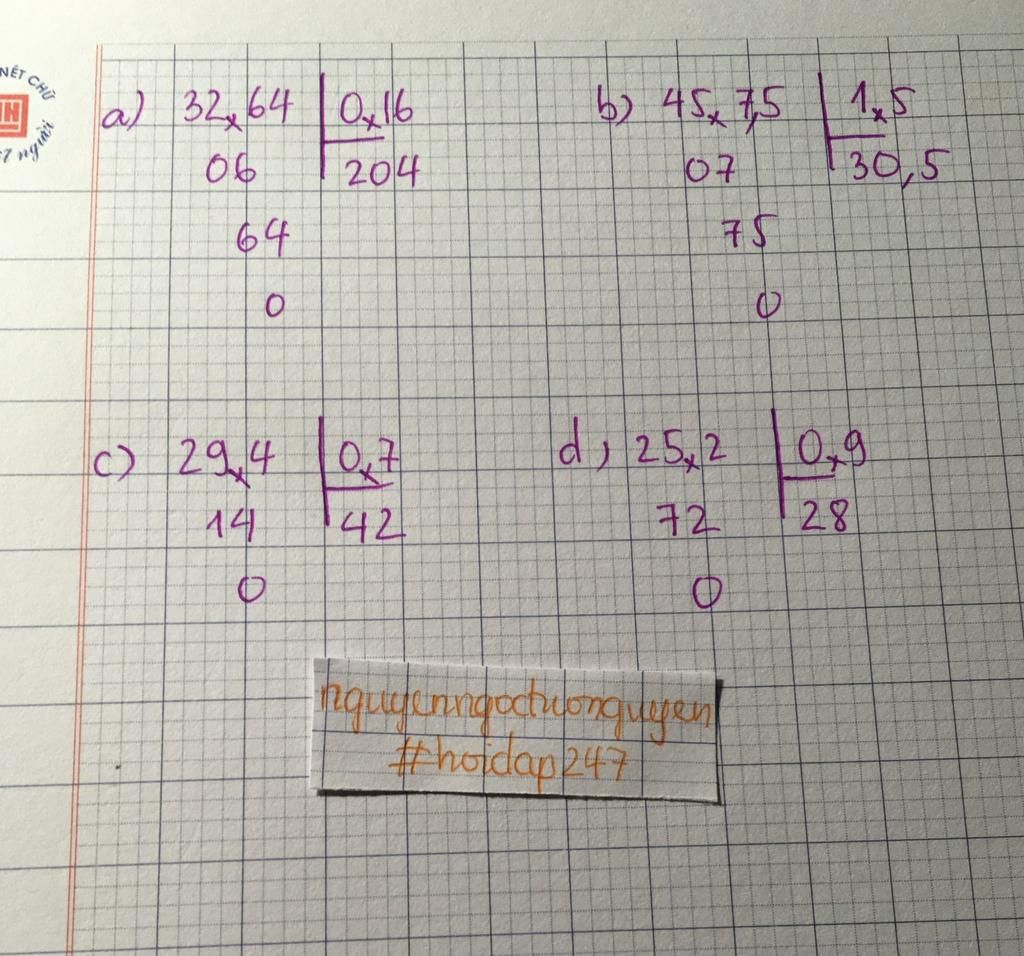 NÉT CHỮ
NGƯỜI
a) 32x64 0x16
06 204
64
0
b) 45x7,5 1x5
07 30,5
75
0
c) 29x4 0x7
14 42
0
d, 25x2 0x9
72 28
0
nguyenngoctuonguyen
#hoidap247